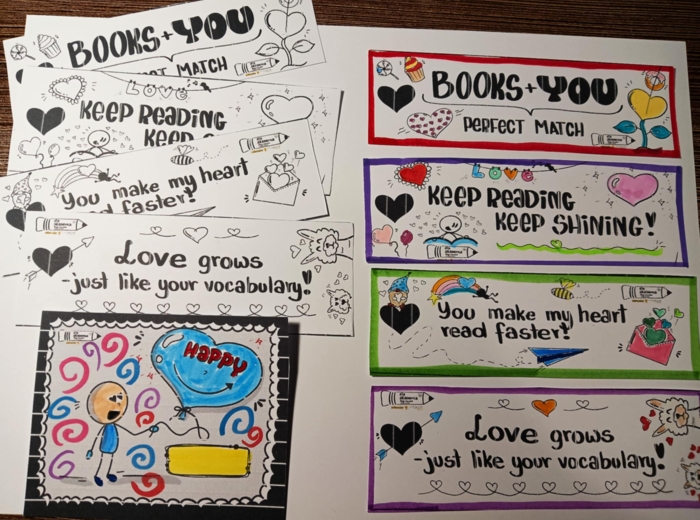 BOOKS+YOU
MATCH
LOVE
KEEP READING
KEEP
You make my heart
faster!
Love grows
-just like your vocabulary!
HAPPY
BOOKS+YOU
PERFECT MATCH
LOVE
KEEP READING
KEEP SHINING!
You make my heart
read faster!
Love grows
-just like your vocabulary!